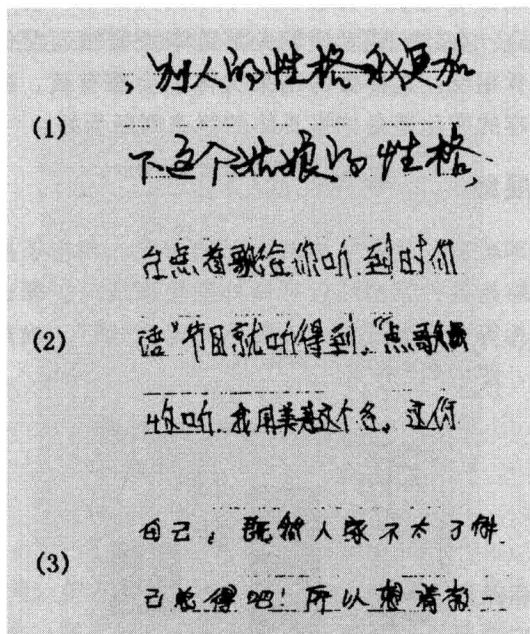 ，别人的性格我更加
(1)
下这个姑娘的性格，
台点首歌给你听.到时你
(2) 语"节目就听得到。"点歌
收听.我用美基这个名。这份
自己，既然人家不太了解
(3)
己觉得吧！所以想请教一